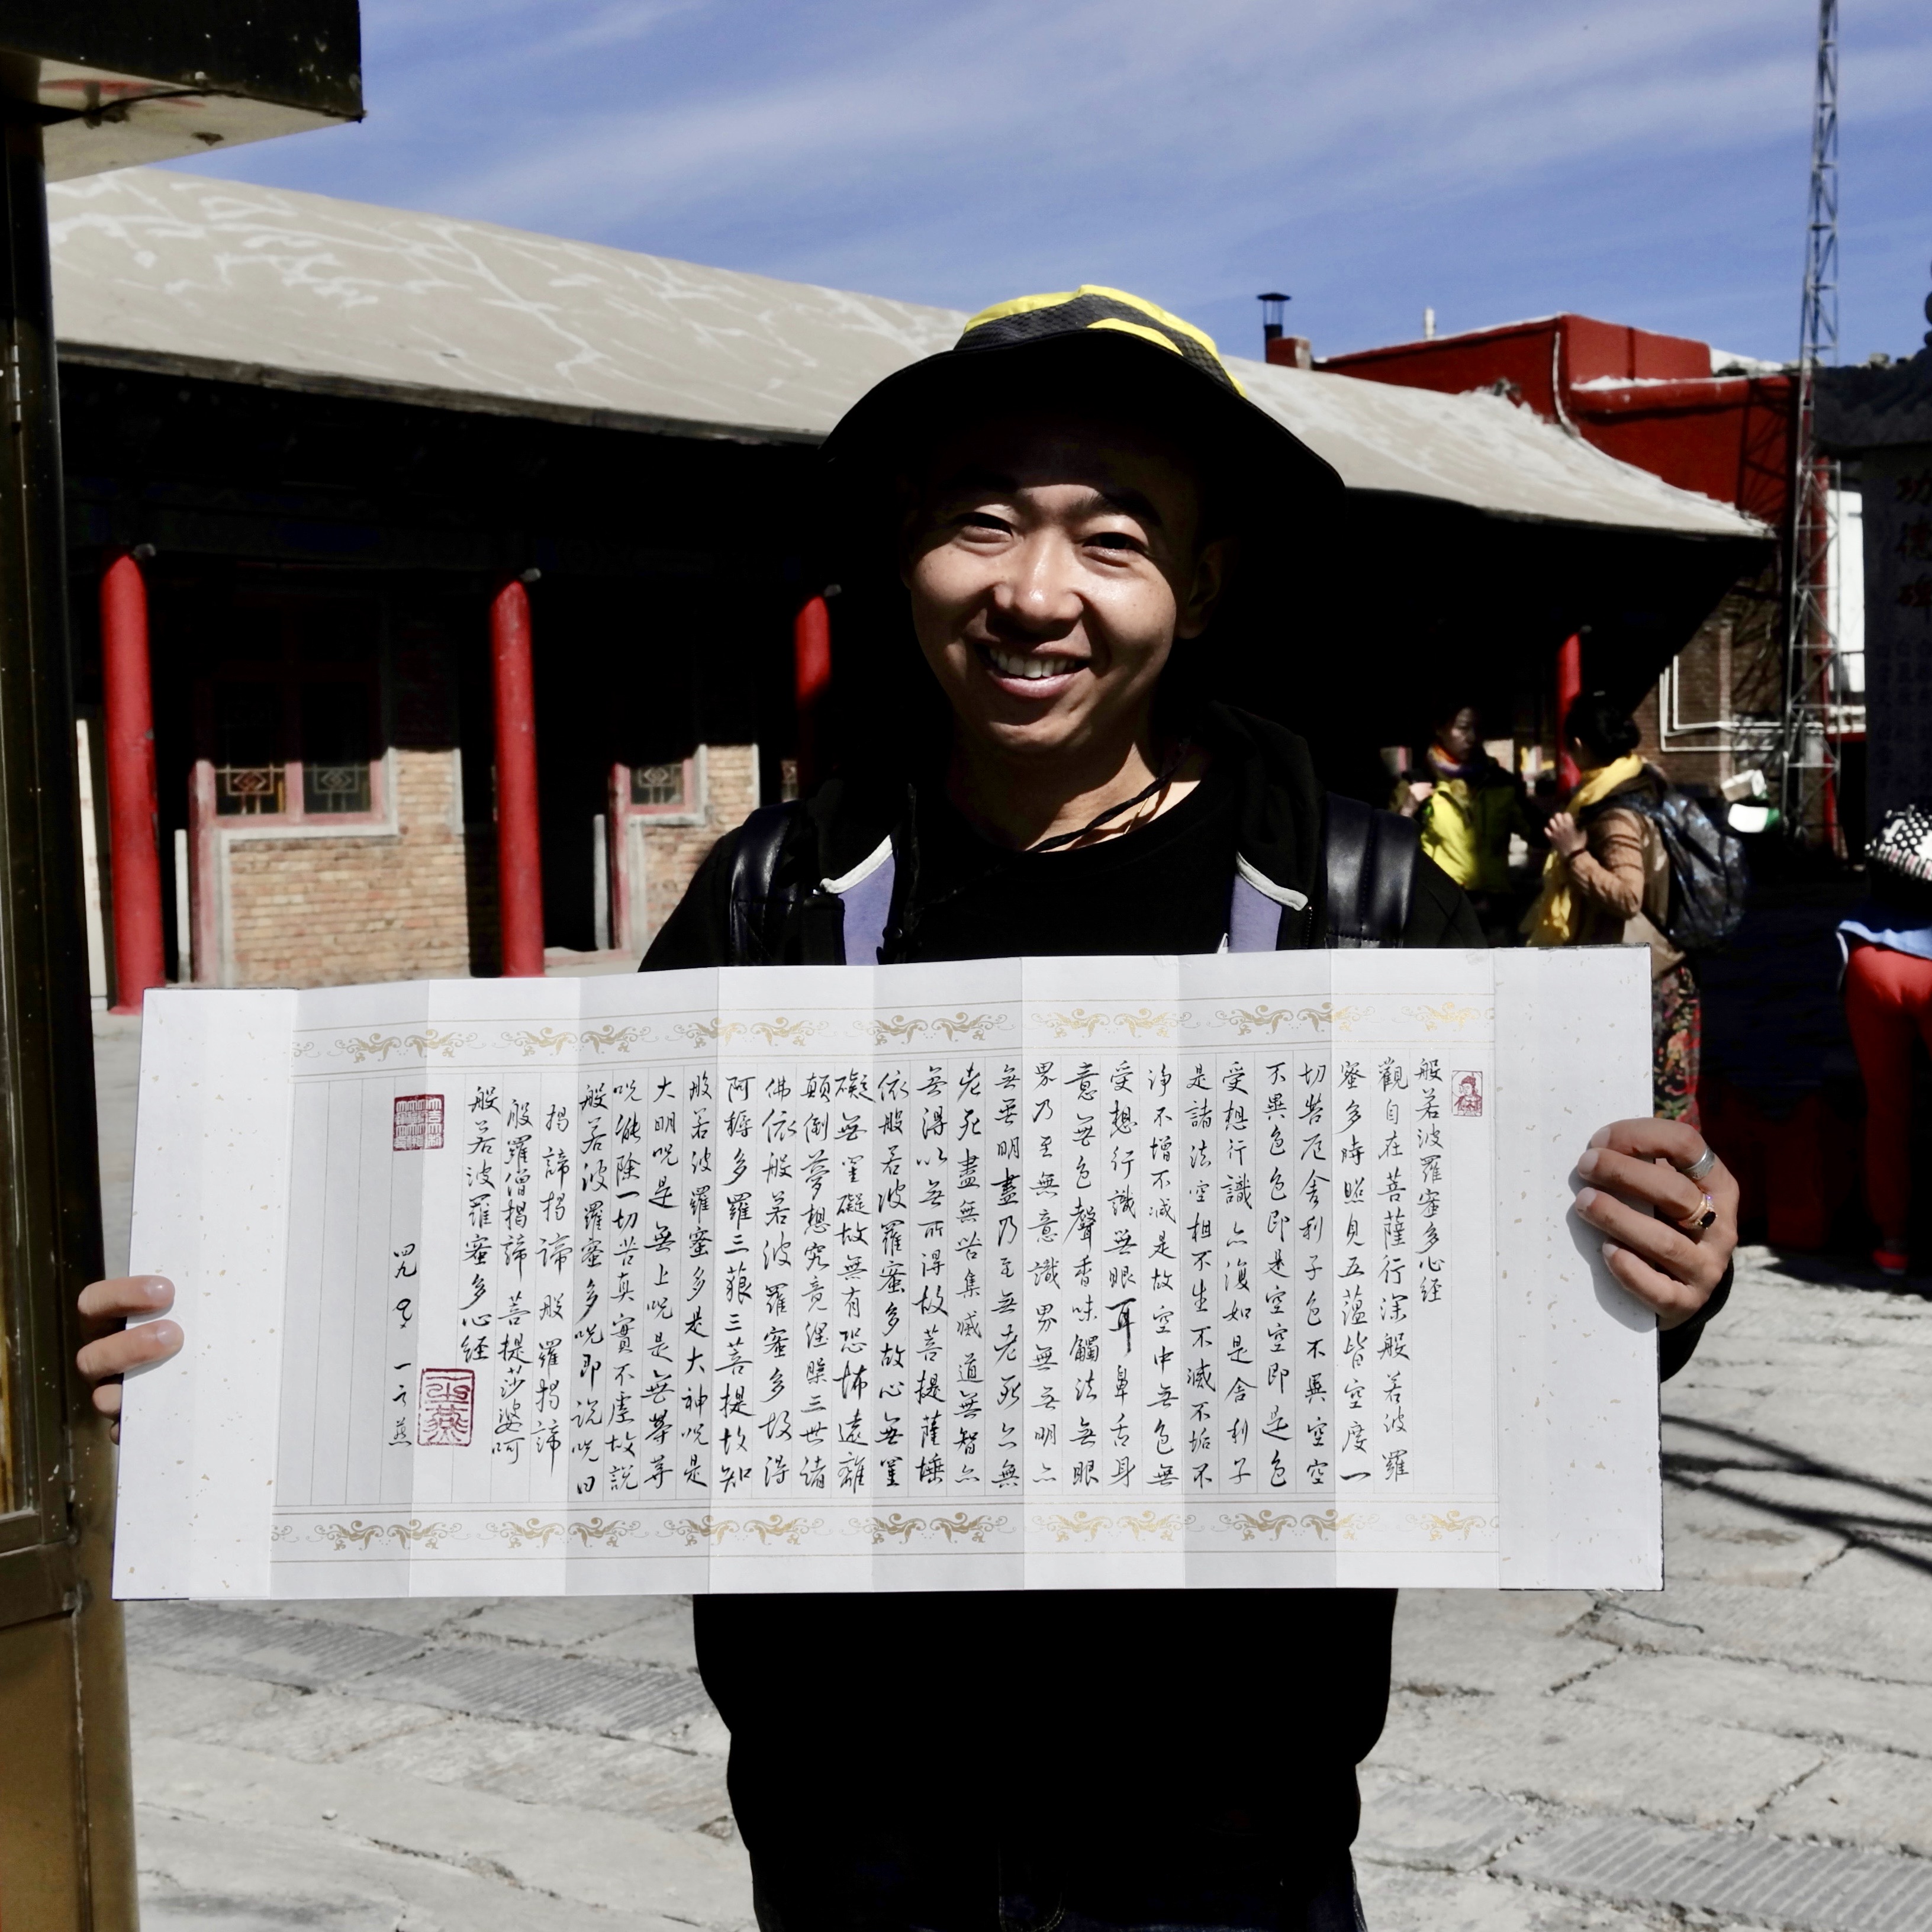 般若波羅蜜多心经
觀自在菩薩行深般若波羅
蜜多時照見五藴皆空度一
切苦厄舍利子色不異空空
不異色色即是空空即是色
受想行識亦復如是舍利子
是諸法空相不生不滅不垢不
净不增不减是故空中無色無
受想行識無眼耳鼻舌身
意無色聲香味觸法無眼
界乃至無意識界無無明亦
無無明盡乃至無老死亦無
老死盡無苦集滅道無智亦
無得以無所得故菩提薩埵
依般若波羅蜜多故心無罣
礙無罣礙故無有恐怖遠離
顛倒夢想究竟涅槃三世諸
佛依般若波羅蜜多故得
阿耨多羅三藐三菩提故知
般若波羅蜜多是大神咒是
大明咒是無上咒是無等等
咒能除一切苦真實不虚故說
般若波羅蜜多咒即説咒曰
揭諦揭諦 般羅揭諦
般羅僧揭諦 菩提莎婆呵
般若波羅蜜多心经
功德碑